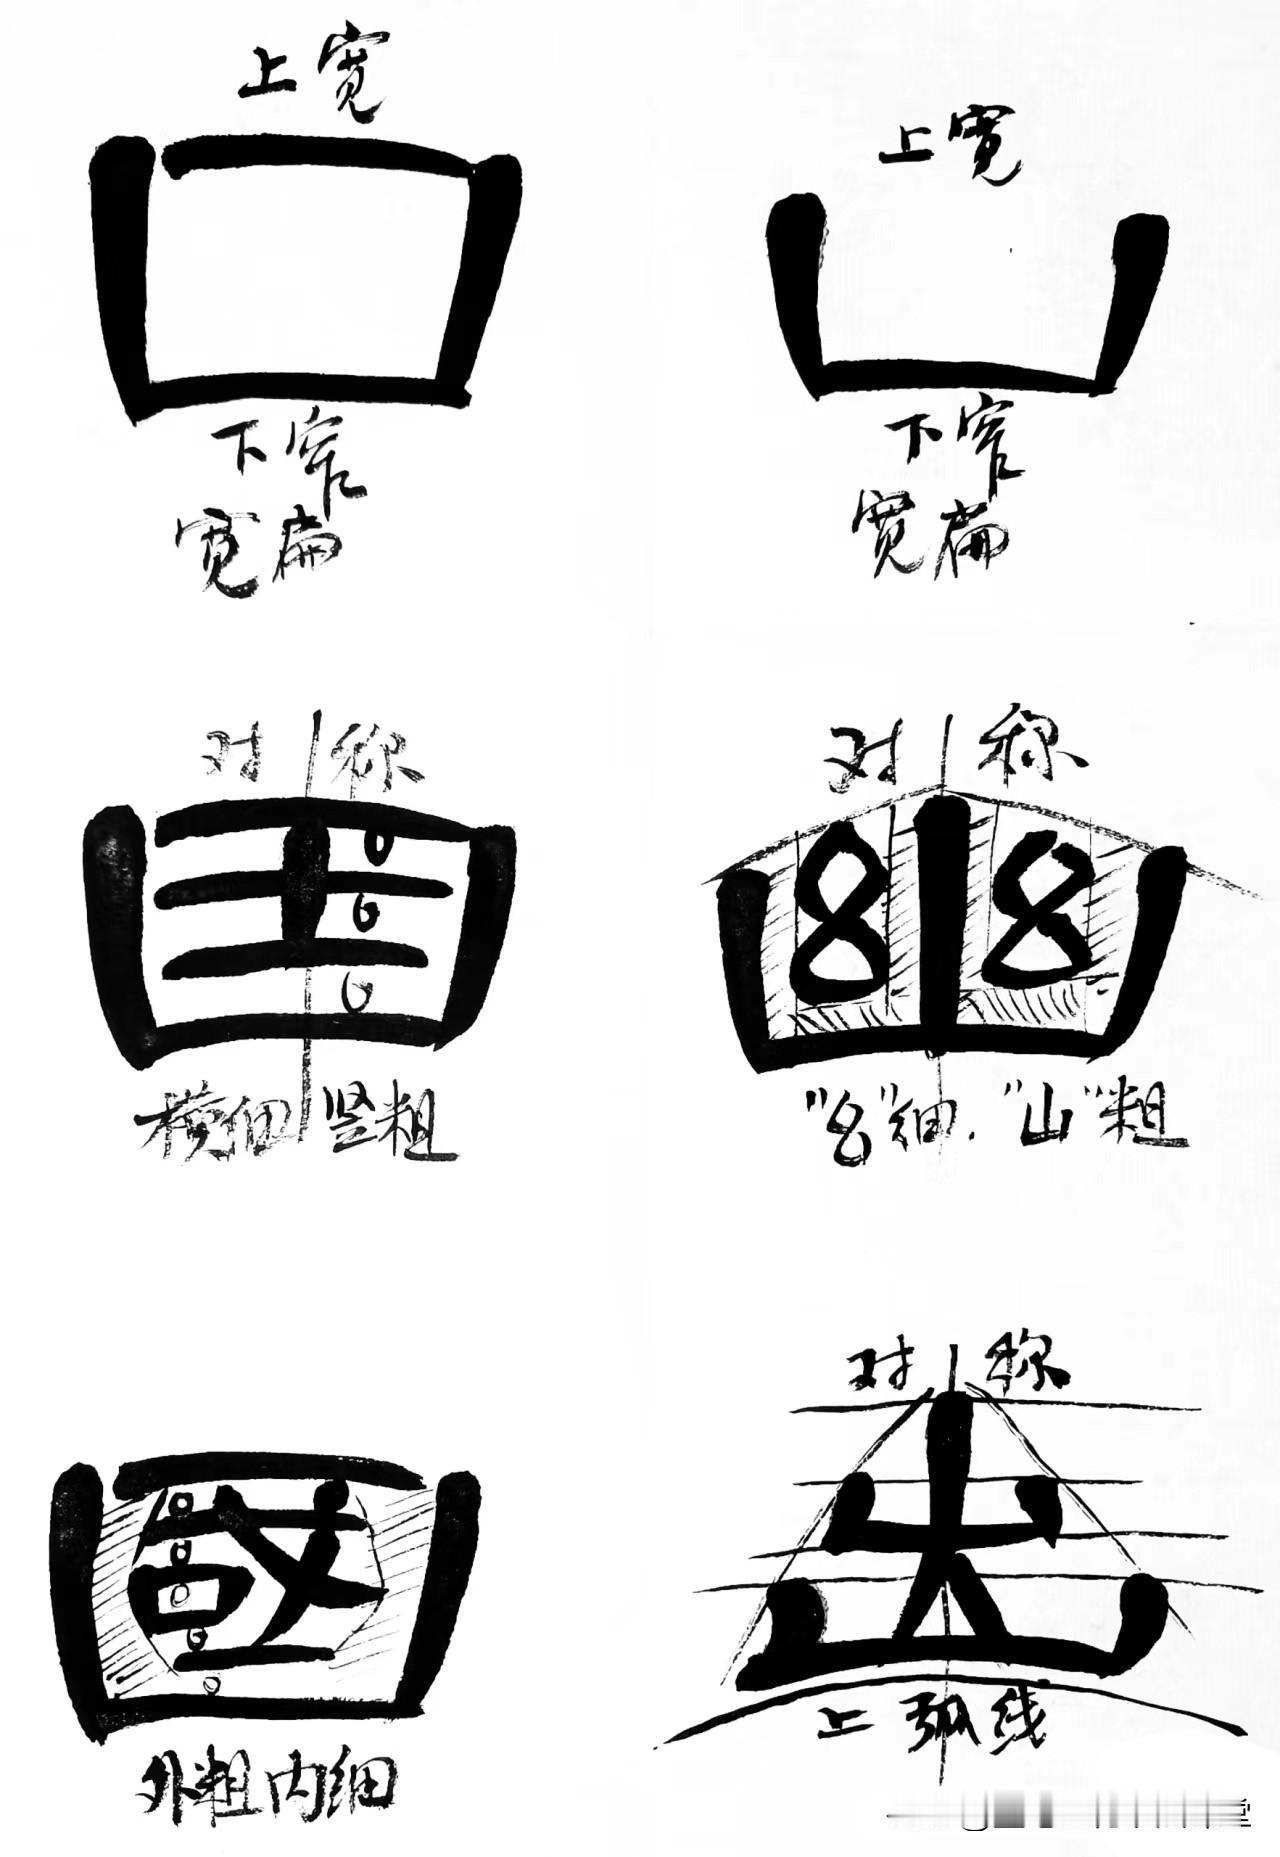 上宽
口
下窄
宽扁
上宽
凵
下窄
宽扁
对称
横细竖粗
对称
幽
"幺"细．"山"粗
國
外粗内细
对称
出
上弧线